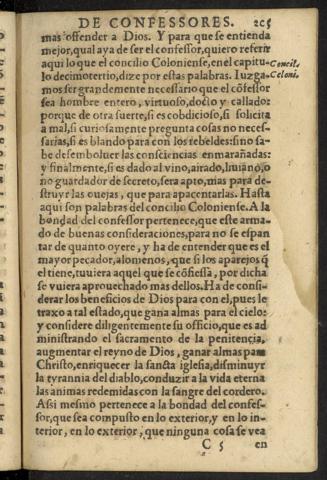 DE CONFESSORES. 205
mas offender a Dios. Y para que se entienda
mejor, qual aya de ser el confessor, quiero referir
aqui lo que el concilio Coloniense, en el capitu- Concil.
lo decimotertio, dize por estas palabras. Iuzga- Coloni.
mos ser grandemente necessario que el cõfessor
sea hombre entero, virtuoso, docto y callado:
porque de otra suerte, si es cobdicioso, si solicita
a mal, si curiosamente pregunta cosas no neces-
sarias, si es blando para con los rebeldes: sino sa-
be desemboluer las consciencias enmarañadas:
y finalmente, si es dado al vino, airado, liuiano, o
no guardador de secreto, sera apto, mas para de-
struyr las ouejas, que para apacentarlas. Hasta
aqui son palabras del concilio Coloniense. A la
bondad del confessor pertenece, que este arma-
do de buenas consideraciones, para no se espan
tar de quanto oyere, y ha de entender que es el
mayor pecador, alomenos, que si los aparejos q̃
el tiene, tuuiera aquel que se cõfiessa, por dicha
se vuiera aprouechado mas dellos. Ha de consi-
derar los beneficios de Dios para con el, pues le
traxo a tal estado, que gana almas para el cielo:
y considere diligentemente su officio, que es ad
ministrando el sacramento de la penitencia,
augmentar el reyno de Dios, ganar almas para
Christo, enriquecer la sancta iglesia, disminuyr
la tyrannia del diablo, conduzir a la vida eterna
las animas redemidas con la sangre del cordero.
Assi mesmo pertenece a la bondad del confes-
sor, que sea compusto en lo exterior, y en lo in-
terior, en lo exterior, que ninguna cosa se vea
C 5 en